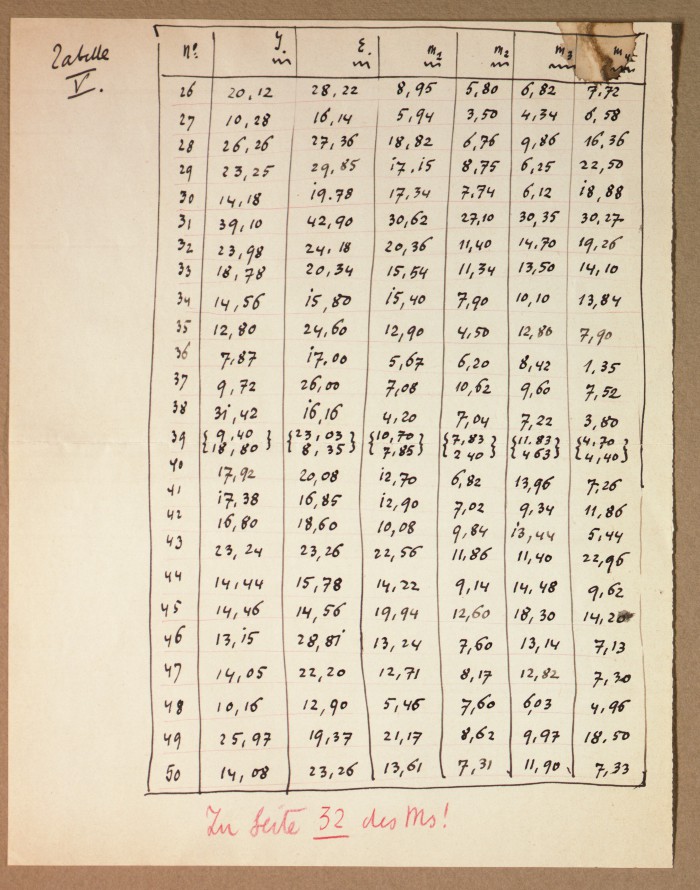 Tabelle V.
No. J. E. m1 m2 m3 m4
m m m m m m
26 20,12 28,22 8,95 5,80 6,82 7,72
27 10,28 16,14 5,94 3,50 4,34 6,58
28 26,26 27,36 18,82 6,76 9,86 16,36
29 23,25 29,85 17,15 8,75 6,25 22,50
30 14,18 19.78 17,34 7,74 6,12 18,88
31 39,10 42,90 30,62 27,10 30,35 30,27
32 23,98 24,18 20,36 11,40 14,70 19,26
33 18,78 20,34 15,54 11,34 13,50 14,10
34 14,56 15,80 15,40 7,90 10,10 13,84
35 12,80 24,60 12,90 4,50 12,80 7,90
36 7,87 17,00 5,67 6,20 8,42 1,35
37 9,72 26,00 7,08 10,62 9,60 7,52
38 31,42 16,16 4,20 7,04 7,22 3,80
39 {9,40 {23,03} {10,70} {7,83} {11.83} {4,70
18,80} 8,35} 7,85} 2 40} 4 63} 4,40}
40 17,92 20,08 12,70 6,82 13,96 7,26
41 17,38 16,85 12,90 7,02 9,34 11,86
42 16,80 18,60 10,08 9,84 13,44 5,44
43 23,24 23,26 22,56 11,86 11,40 22,96
44 14,44 15,78 14,22 9,14 14,48 9,62
45 14,46 14,56 19,94 12,60 18,30 14,20
46 13,15 28,81 13,24 7,60 13,14 7,13
47 14,05 22,20 12,71 8,17 12,82 7,30
48 10,16 12,90 5,46 7,60 6,03 4,96
49 25,97 19,37 21,17 8,62 9,97 18,50
50 14,08 23,26 13,61 7,31 11,90 7,33
Zu Seite 32 des Ms!